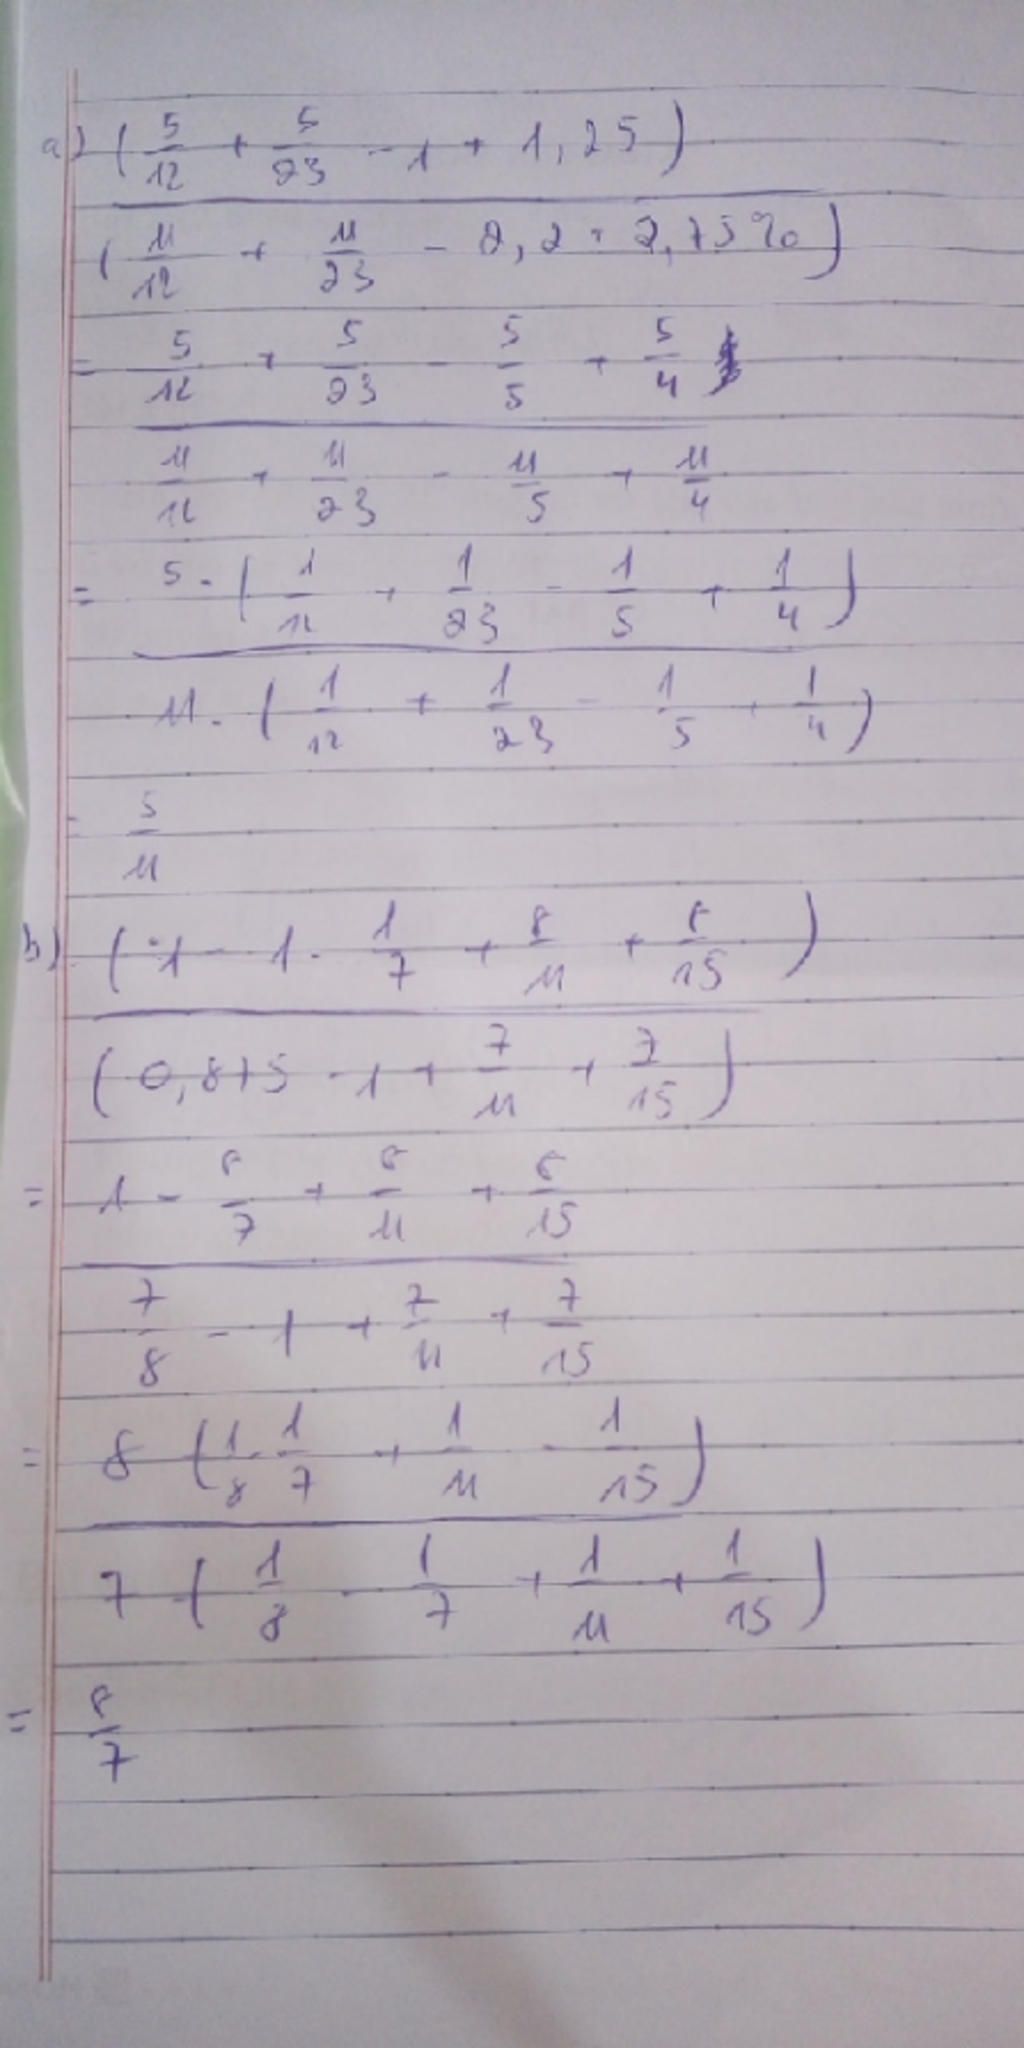 a) ( 5/12 + 5/23 - 1 + 1,25 )
( 11/12 + 11/23 - 2,2 + 2,75% )
= 5/12 + 5/23 - 5/5 + 5/4
11/12 + 11/23 - 11/5 + 11/4
= 5 . ( 1/12 + 1/23 - 1/5 + 1/4 )
11 . ( 1/12 + 1/23 - 1/5 + 1/4 )
= 5/11
b) ( 1 - 1 . 1/7 + 8/11 + 8/15 )
( 0,875 - 1 + 7/11 + 7/15 )
= 1 - 8/7 + 8/11 + 8/15
7/8 - 1 + 7/11 + 7/15
= 8 ( 1/8 - 1/7 + 1/11 - 1/15 )
7 ( 1/8 - 1/7 + 1/11 + 1/15 )
= 8/7